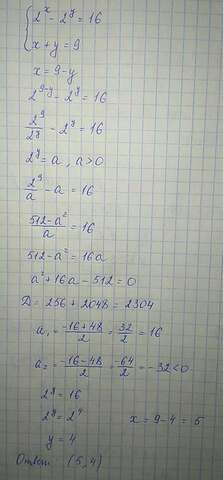 { 2^x - 2^y = 16
x + y = 9
x = 9 - y
2^(9-y) - 2^y = 16
2^9/2^y - 2^y = 16
2^y = a, a > 0
2^9/a - a = 16
(512 - a^2)/a = 16
512 - a^2 = 16a
a^2 + 16a - 512 = 0
D = 256 + 2048 = 2304
a₁ = (-16 + 48)/2 = 32/2 = 16
a₂ = (-16 - 48)/2 = -64/2 = -32 < 0
2^y = 16
2^y = 2^4 x = 9 - 4 = 5
y = 4
Ответ: (5, 4)